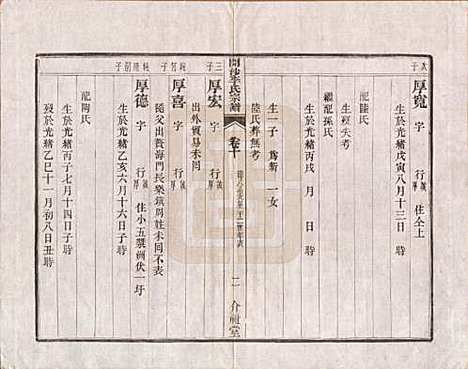 長子
厚寬 字 行 號 住仝上
生於光緒戊寅八月十三日 時
配陸氏
生殁失考
繼配孫氏
生於光緒丙戌 月 日 時
生一子 爲新 一女
陸氏葬無考
開沙李氏宗譜
卷十
二 介祉堂
三子
厚宏 字 行 號
出外貿易未回
厚喜 字 行 號
隨父出贅海門長樂鎮周姓未回不表
厚德 字 行 號 住小五㙊洲伏一圩
生於光緒乙亥六月十六日子時
配陶氏
生於光緒丙子七月十四日子時
殁於光緒乙巳十一月初八日丑時